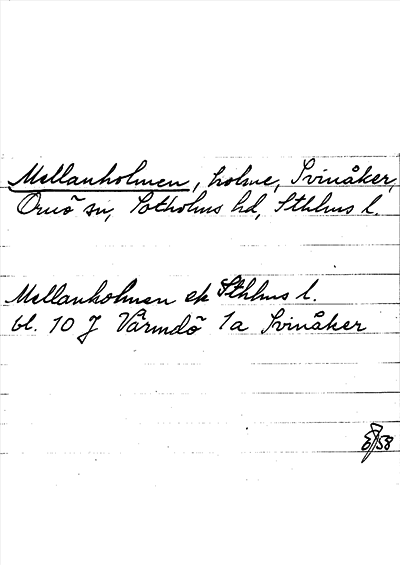 Mellanholmen, holme, Svinåker,
Ornö sn, Sotholms hd, Sthlms l.
Mellanholmen ek Sthlms l.
bl. 10 J Värmdö 1a Svinåker
58